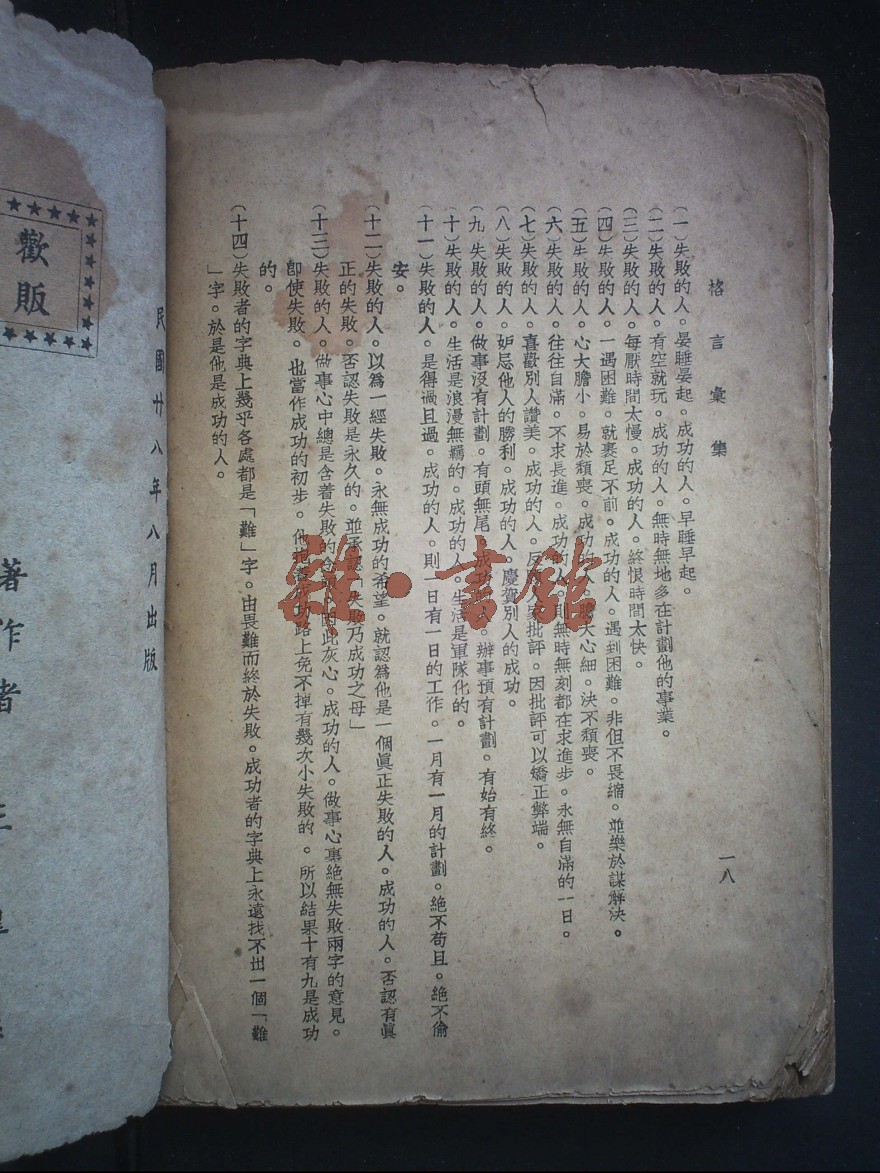 格言彙集
一八
(一)失敗的人。晏睡晏起。成功的人。早睡早起。
(二)失敗的人。有空就玩。成功的人。無時無地多在計劃他的事業。
(三)失敗的人。每厭時間太慢。成功的人。終恨時間太快。
(四)失敗的人。一遇困難。就裹足不前。成功的人。遇到困難。非但不畏縮。並樂於謀解決。
(五)失敗的人。心大膽小。易於頽喪。成功的人。膽大心細。決不頽喪。
(六)失敗的人。往往自滿。不求長進。成功的人。則無時無刻都在求進步。永無自滿的一日。
(七)失敗的人。喜歡別人讚美。成功的人。反 人家批評。因批評可以矯正弊端。
(八)失敗的人。妒忌他人的勝利。成功的人。慶賀別人的成功。
(九)失敗的人。做事沒有計劃。有頭無尾。成功的人。辦事預有計劃。有始有終。
(十)失敗的人。生活是浪漫無羈的。成功的人。生活是軍隊化的。
(十一)失敗的人。是得過且過。成功的人。則一日有一日的工作。一月有一月的計劃。絕不苟且。絕不偷
安。
(十二)失敗的人。以爲一經失敗。永無成功的希望。就認爲他是一個眞正失敗的人。成功的人。否認有眞
正的失敗。否認失敗是永久的。並承認「失敗乃成功之母」
(十三)失敗的人。做事心中總是含着失敗的 因此灰心。成功的人。做事心裏絕無失敗兩字的意見。
卽使失敗。也當作成功的初步。他 成功路上免不掉有幾次小失敗的。所以結果十有九是成功
的。
(十四)失敗者的字典上幾乎各處都是「難」字。由畏難而終於失敗。成功者的字典上永遠找不出一個「難
」字。於是他是成功的人。
民國廿八年八月出版
著作者
歡
販
雜·書館